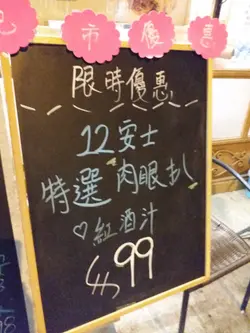 市優惠
限時優惠
12安士
特選肉眼扒
♡紅酒汁
$99